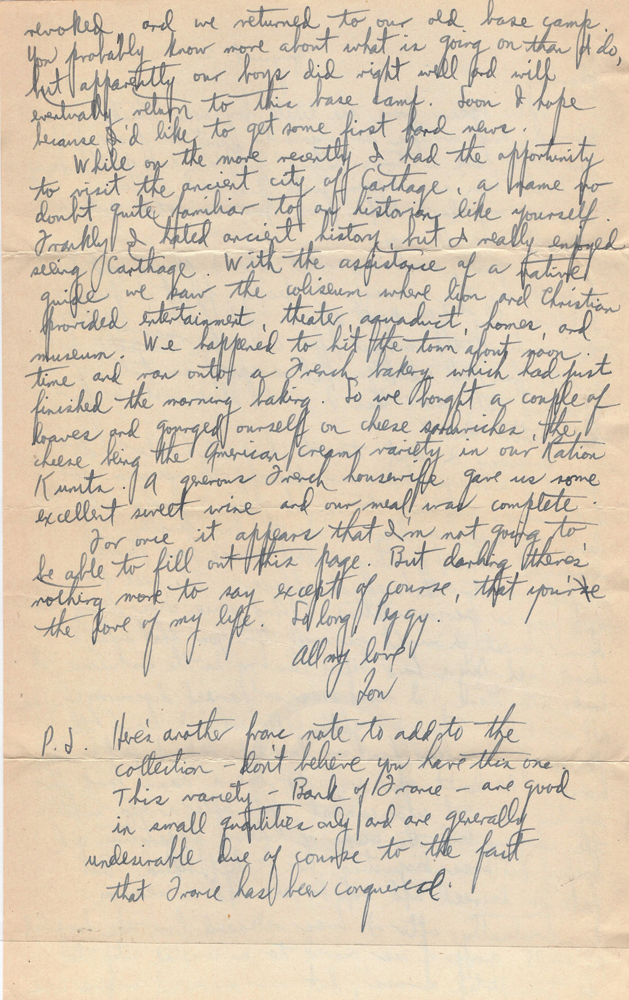 revoked and we returned to our old base camp.
You probably know more about what is going on than I do,
but apparently our boys did right well and will
eventually return to this base camp. Soon I hope
because I'd like to get some first hand news.
While on the move recently I had the opportunity
to visit the ancient city of Carthage, a name no
doubt quite familiar to any historian like yourself.
Frankly I hated ancient history, but I really enjoyed
seeing Carthage. With the assistance of a native
guide we saw the coliseum where lion and Christian
provided entertainment, theater, aquaduct, homes, and
museum. We happened to hit the town about noon
time and ran onto a French bakery which had just
finished the morning baking. So we bought a couple of
loaves and gourged ourself on cheese sandwiches, the
cheese being the American cream variety in our Ration
K units. A generous French housewife gave us some
excellent sweet wine and our meal was complete.
For once it appears that I'm not going to
be able to fill out this page. But darling there's
nothing more to say except of course, that you're
the love of my life. So long Peggy.
All my love
Jon
P.S. Here's another franc note to add to the
collection - don't believe you have this one.
This variety - Bank of France - are good
in small quantities only and are generally
undesirable due of course to the fact
that France has been conquered.